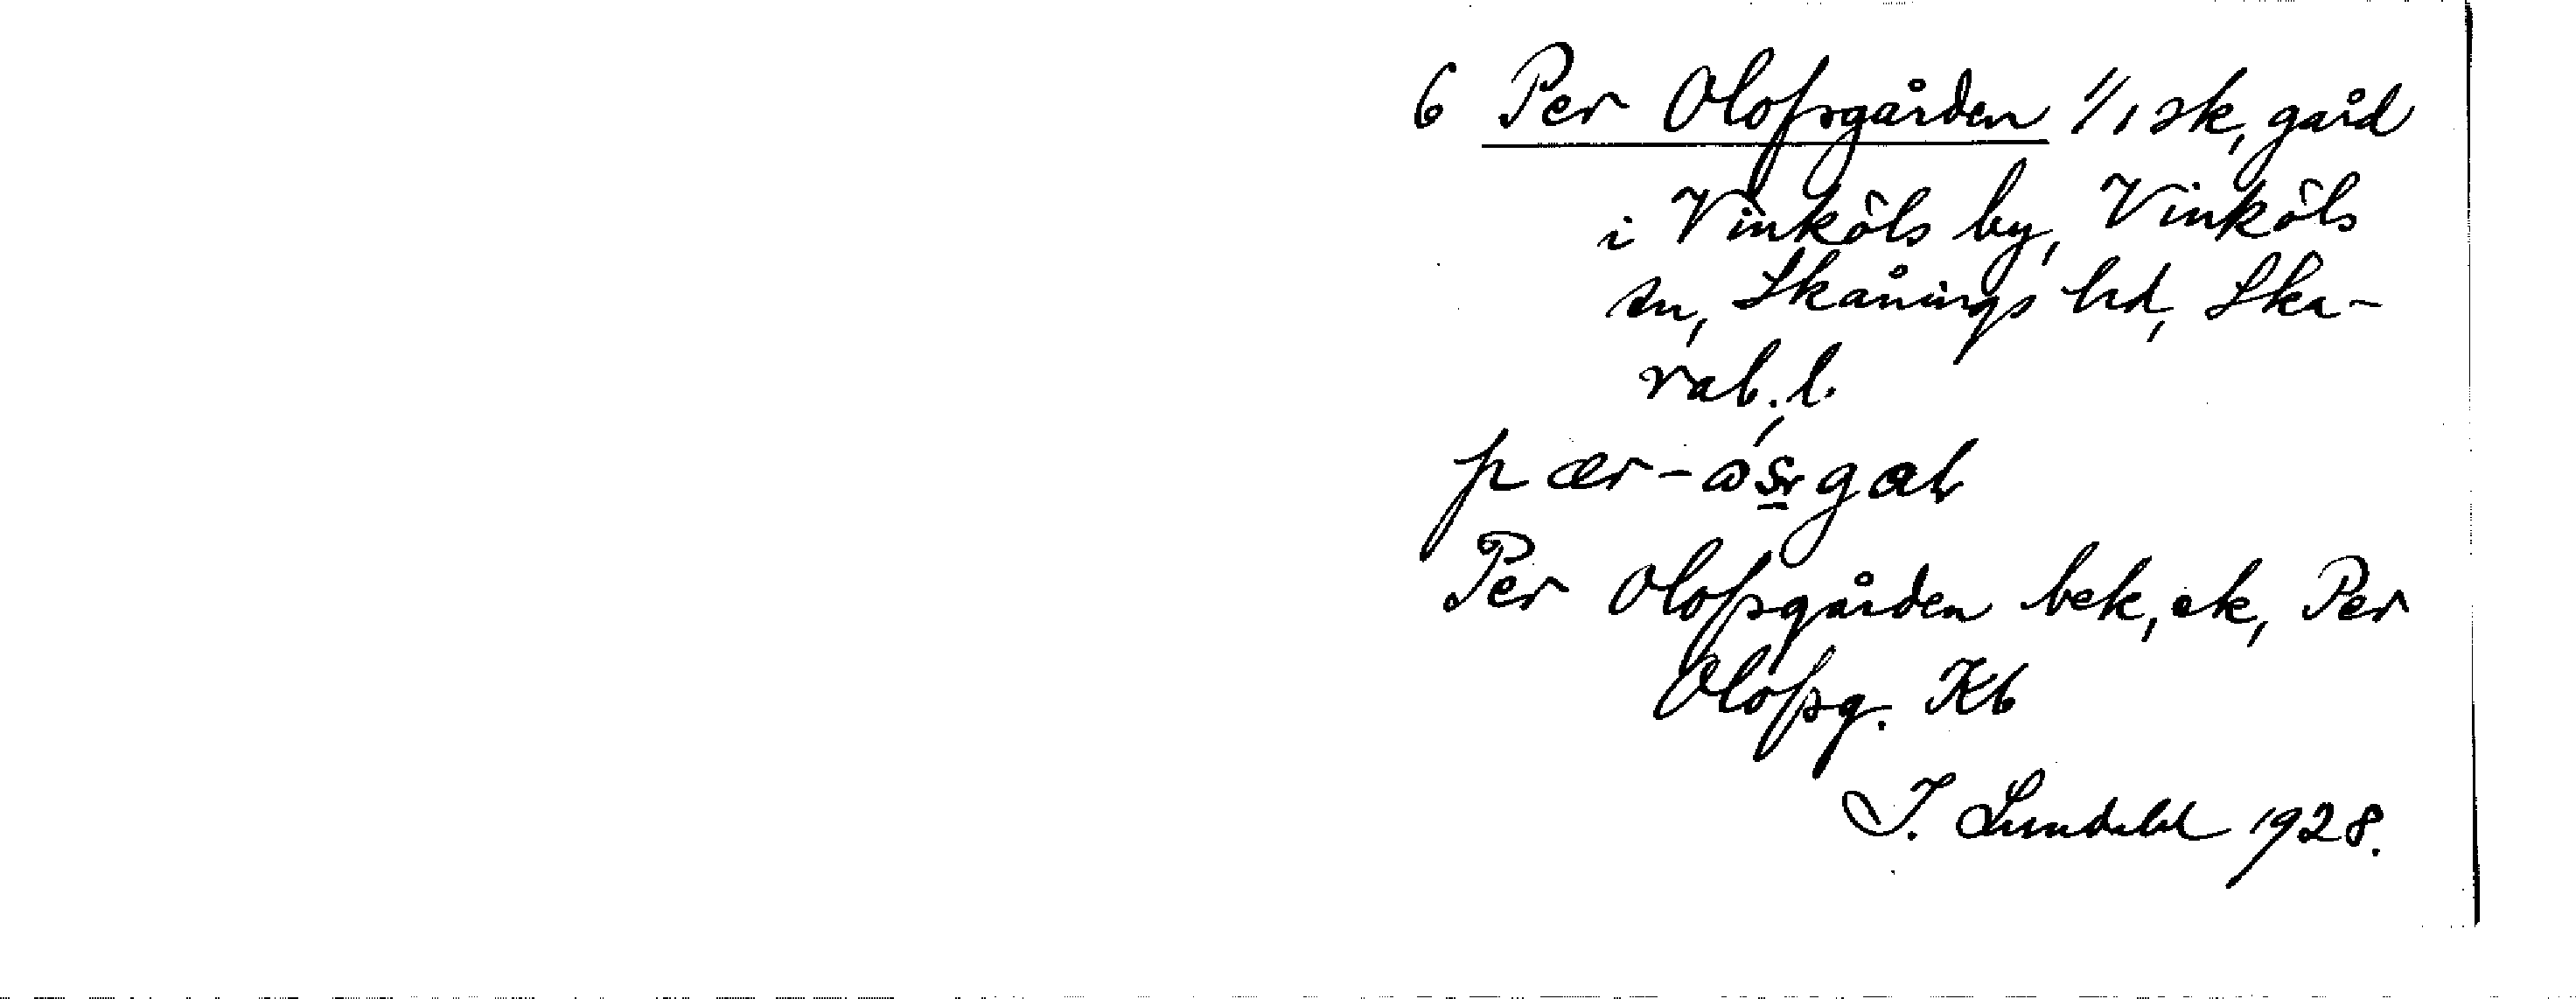 6 Per Olofsgården 1/1 sk, gård
i Vinköls by, Vinköls
sn, Skånings hd, Ska-
rab. l.
pær-
Per Olofsgården bek, ek, Per
Olofsg. Kb
J. Lundahl 1928.